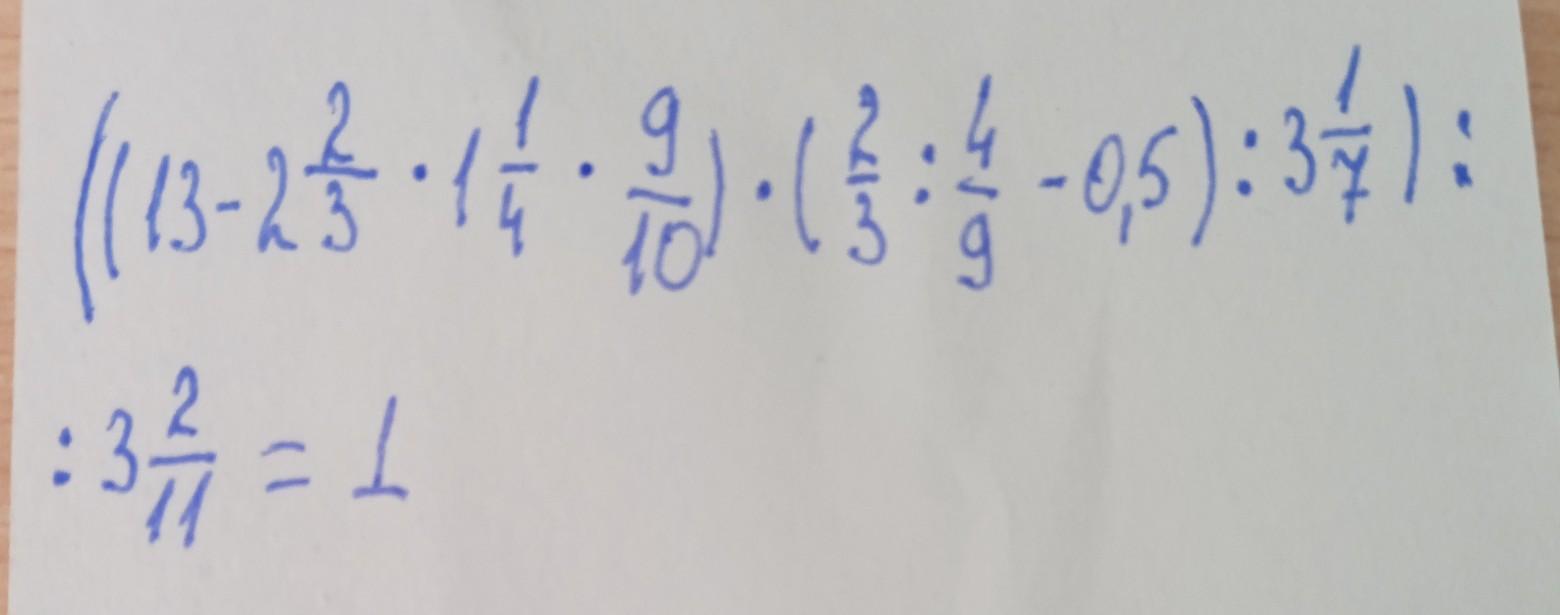 ((13-2 2/3 · 1 1/4 · 9/10) · (2/3 : 4/9 - 0,5) : 3 1/7) :
: 3 2/11 = 1